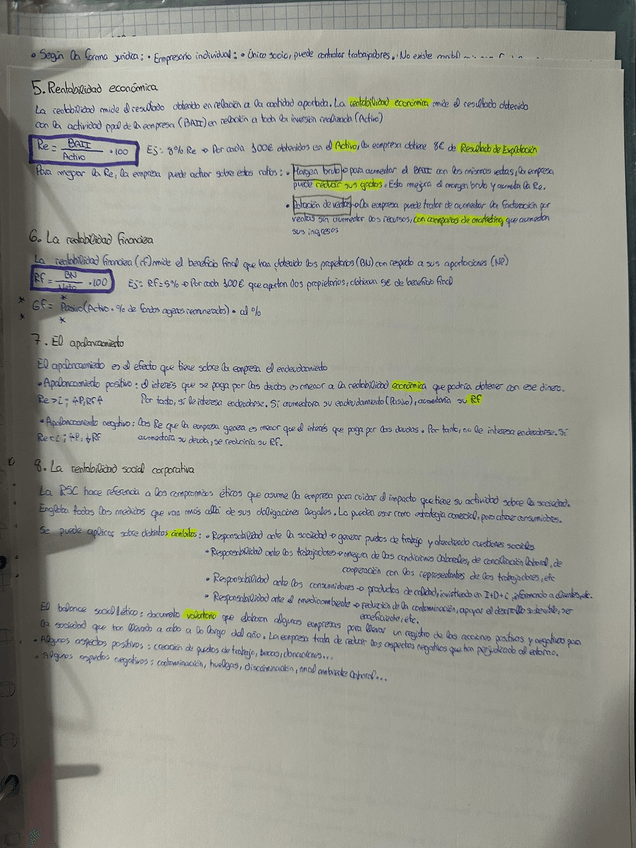 • Según la forma jurídica: • Empresario individual: • Único socio, puede contratar trabajadores. No existe
5. Rentabilidad económica
La rentabilidad mide el resultado obtenido en relación a la cantidad aportada. La rentabilidad económica mide el resultado obtenido
con la actividad ppal de la empresa (BAII) en relación a toda la inversión realizada (Activo)
Re = BAII / Activo • 100 Ej: 8% Re → Por cada 100€ obtenidos con el Activo, la empresa obtiene 8€ de Resultado de Explotación
Para mejorar la Re, la empresa puede actuar sobre estos ratios: • Margen bruto → para aumentar el BAII con las mismas ventas, la empresa
puede reducir sus gastos. Esto mejora el margen bruto y aumenta la Re.
• Rotación de ventas → La empresa puede tratar de aumentar la facturación por
ventas sin aumentar los recursos, con campañas de marketing que aumenten
sus ingresos
6. La rentabilidad financiera
La rentabilidad financiera (rf) mide el beneficio final que han obtenido los propietarios (BN) con respecto a sus aportaciones (NP)
Rf = BN / Neto • 100 Ej: Rf = 5% → Por cada 100€ que aportan los propietarios, obtienen 5€ de beneficio final
* Gf = Pasivo (Activo • % de fondos ajenos remunerados) • al %
7. El apalancamiento
El apalancamiento es el efecto que tiene sobre la empresa el endeudamiento
• Apalancamiento positivo: el interés que se paga por las deudas es menor a la rentabilidad económica que podría obtener con ese dinero.
Re > i ; ↑P, Rf ↑ Por tanto, sí le interesa endeudarse. Si aumentara su endeudamiento (Pasivo), aumentaría su Rf
• Apalancamiento negativo: La Re que la empresa genera es menor que el interés que paga por las deudas. Por tanto, no le interesa endeudarse. Si
Re < i ; ↑P, ↓Rf aumentaría su deuda, se reduciría su Rf.
8. La rentabilidad social corporativa
La RSC hace referencia a los compromisos éticos que asume la empresa para cuidar el impacto que tiene su actividad sobre la sociedad.
Engloba todas las medidas que van más allá de sus obligaciones legales. La pueden usar como estrategia comercial, para atraer consumidores.
Se puede aplicar sobre distintos ámbitos: • Responsabilidad ante la sociedad → generar puestos de trabajo y atendiendo cuestiones sociales
• Responsabilidad ante los trabajadores → mejora de las condiciones laborales, de conciliación laboral, de
cooperación con los representantes de los trabajadores, etc
• Responsabilidad ante los consumidores → productos de calidad, invirtiendo en I+D+i, informando a clientes, etc.
• Responsabilidad ante el medioambiente → reducción de la contaminación, apoyar el desarrollo sostenible, ser
ecoeficiente, etc.
El balance social/ético: documento voluntario que elaboran algunas empresas para llevar un registro de las acciones positivas y negativas para
la sociedad que han llevado a cabo a lo largo del año. La empresa trata de reducir los aspectos negativos que han perjudicado al entorno.
• Algunos aspectos positivos: creación de puestos de trabajo, becas, donaciones...
• Algunos aspectos negativos: contaminación, huelgas, discriminación, mal ambiente laboral...